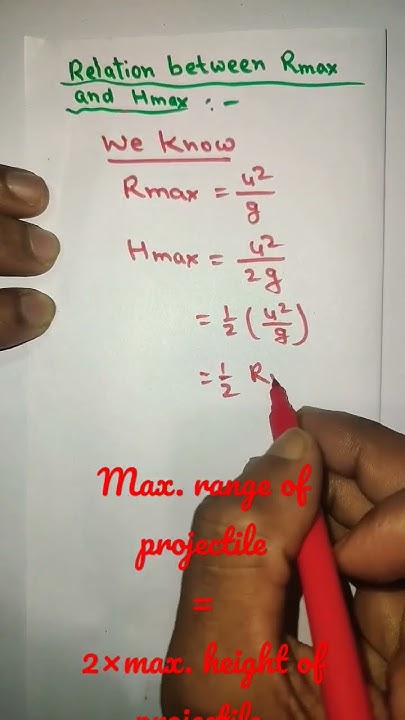 Relation between Rmax
and Hmax :-
We Know
Rmax = u²/g
Hmax = u²/2g
= 1/2 (u²/g)
= 1/2 R
Max. range of
projectile
=
2×max. height of
projectile